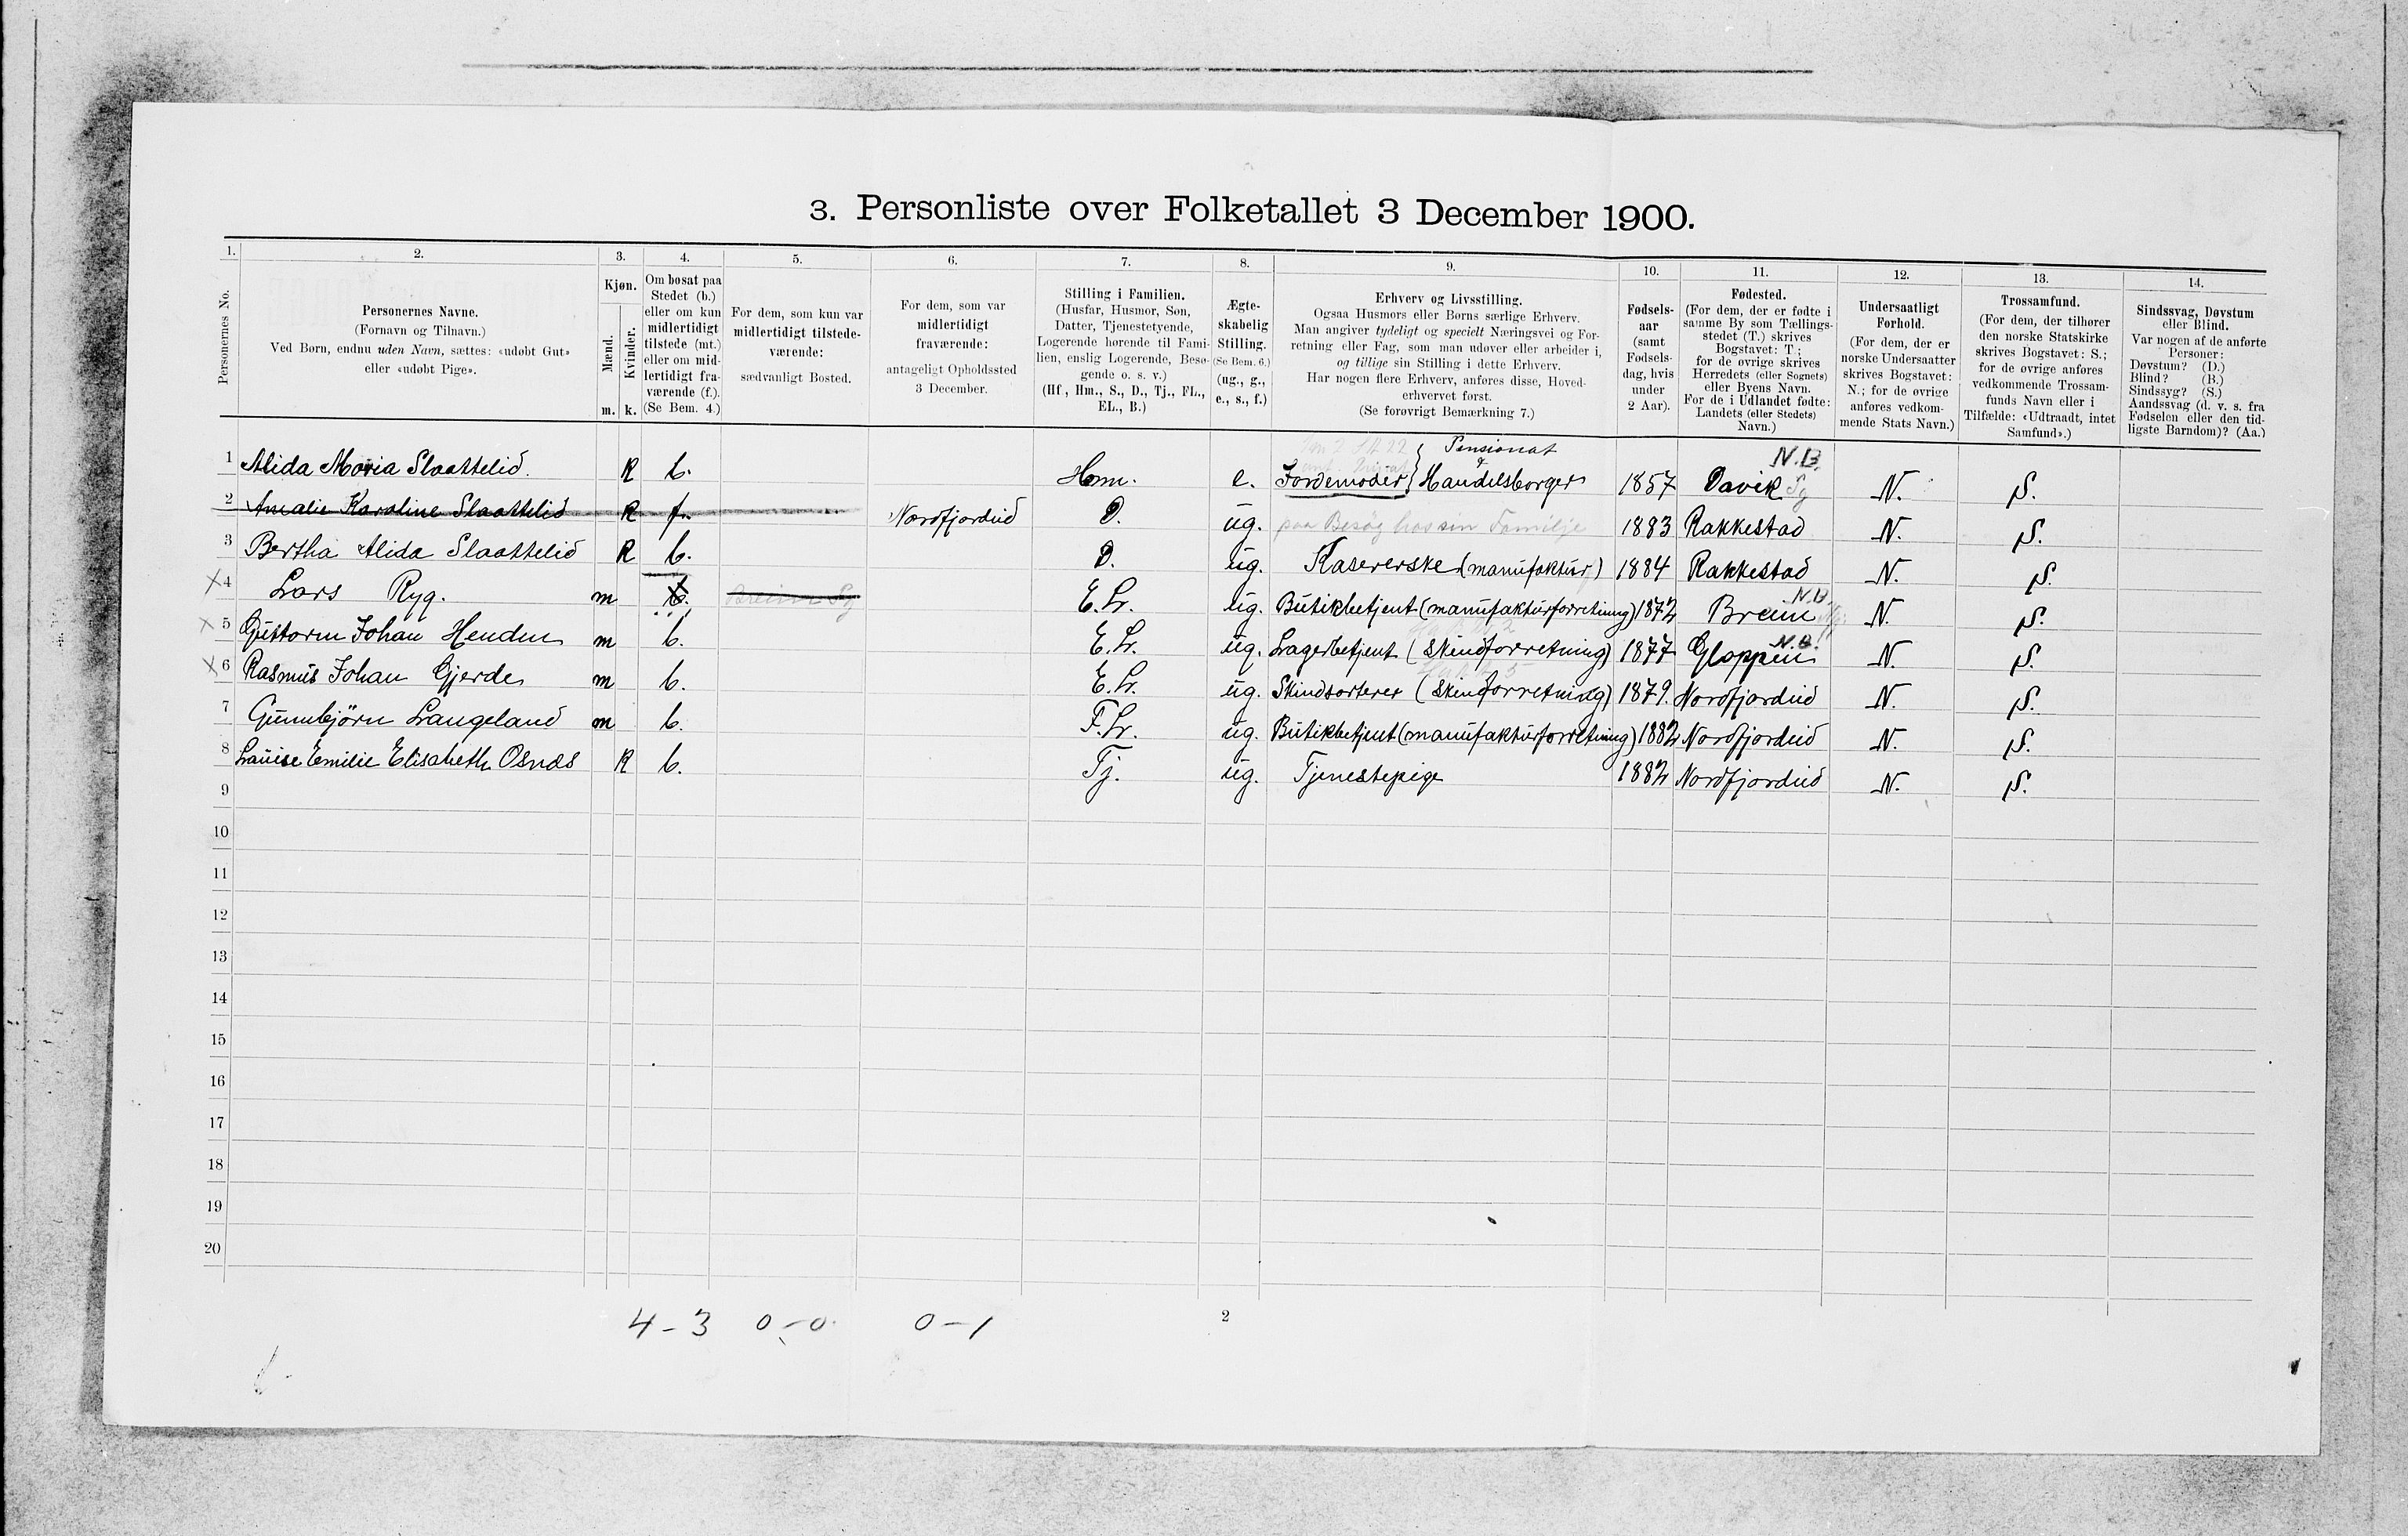 3. Personliste over Folketallet 3 December 1900.
1. 2. 3. 4. 5. 6. 7. 8. 9. 10. 11. 12. 13. 14.
Personernes No.
Personernes Navne.
(Fornavn og Tilnavn.)
Ved Børn, endnu uden Navn, sættes: «udøbt Gut»
eller «udøbt Pige».
Kjøn.
Mænd. Kvinder.
m. k.
Om bosat paa
Stedet (b.)
eller om kun
midlertidigt
tilstede (mt.)
eller om mid-
lertidigt fra-
værende (f.).
(Se Bem. 4.)
For dem, som kun var
midlertidigt tilstede-
værende:
sædvanligt Bosted.
For dem, som var
midlertidigt
fraværende:
antageligt Opholdssted
3 December.
Stilling i Familien.
(Husfar, Husmor, Søn,
Datter, Tjenestetyende,
Logerende hørende til Fami-
lien, enslig Logerende, Besø-
gende o. s. v.)
(Hf., Hm., S., D., Tj., FL.,
EL., B.)
Ægte-
skabelig
Stilling.
(Se Bem. 6.)
(ug., g.,
e., s., f.)
Erhverv og Livsstilling.
Ogsaa Husmors eller Børns særlige Erhverv.
Man angiver tydeligt og specielt Næringsvei og For-
retning eller Fag, som man udøver eller arbeider i,
og tillige sin Stilling i dette Erhverv.
Har nogen flere Erhverv, anføres disse, Hoved-
erhvervet først.
(Se forøvrigt Bemærkning 7.)
Fødsels-
aar
(samt
Fødsels-
dag, hvis
under
2 Aar).
Fødested.
(For dem, der er fødte i
samme By som Tællings-
stedet (T.) skrives
Bogstavet: T.;
for de øvrige skrives
Herredets (eller Sognets)
eller Byens Navn.
For de i Udlandet fødte:
Landets (eller Stedets)
Navn.)
Undersaatligt
Forhold.
(For dem, der er
norske Undersaatter
skrives Bogstavet:
N.; for de øvrige
anføres vedkom-
mende Stats Navn.)
Trossamfund.
(For dem, der tilhører
den norske Statskirke
skrives Bogstavet: S.;
for de øvrige anføres
vedkommende Trossam-
funds Navn eller i
Tilfælde: «Udtraadt, intet
Samfund».)
Sindssvag, Døvstum
eller Blind.
Var nogen af de anførte
Personer:
Døvstum? (D.)
Blind? (B.)
Sindssyg? (S.)
Aandssvag (d. v. s. fra
Fødselen eller den tid-
ligste Barndom)? (Aa.)
Pensionat
&
N.B.
1 Alida Maria Slaattelid. K b. Hm. e. Jordemoder Handelsborger 1857 Davik Sg N. S.
2 Amalie Karoline Slaattelid K f. Nordfjordeid D. ug. paa Besøg hos sin Familje 1883 Rakkestad N. S.
3 Bertha Alida Slaattelid K b. D. ug. Kasererske (manufaktur) 1884 Rakkestad N. S.
N.B.
4 Lars Ryg. m b. Breim Sg E.L. ug. Butikbetjent (manufakturforretning) 1872 Breim N. S.
N.B.
5 Guttorm Johan Henden m b. E.L. ug. Lagerbetjent (Skindforretning) 1877 Gloppen N. S.
6 Rasmus Johan Gjerde m b. E.L. ug. Skindsorterer (Skindforretning) 1879. Nordfjordeid N. S.
7 Gunnbjörn Langeland m b. F.L. ug. Butikbetjent (manufakturforretning) 1882 Nordfjordeid N. S.
8 Lauise Emilie Elisabeth Osnæs K b. Tj. ug. Tjenestepige 1882 Nordfjordeid N. S.
9
10
11
12
13
14
15
16
17
18
19
20
4-3 0-0 0-1
2